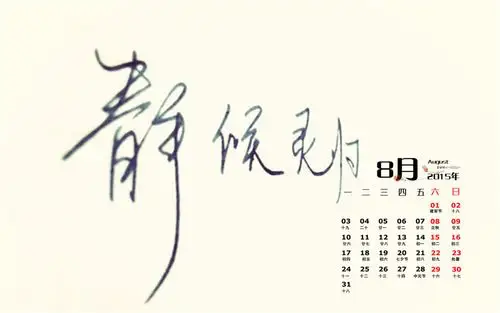 静候灵归
8月
August
2015年
一 二 三 四 五 六 日
01 02
建军节 十八
03 04 05 06 07 08 09
十九 二十 廿一 廿二 廿三 立秋 廿五
10 11 12 13 14 15 16
廿六 廿七 廿八 廿九 初二 初三
17 18 19 20 21 22 23
初四 初五 初六 七夕节 初八 初九 处暑
24 25 26 27 28 29 30
十一 十二 十三 十四 中元节 十六 十七
31
十八